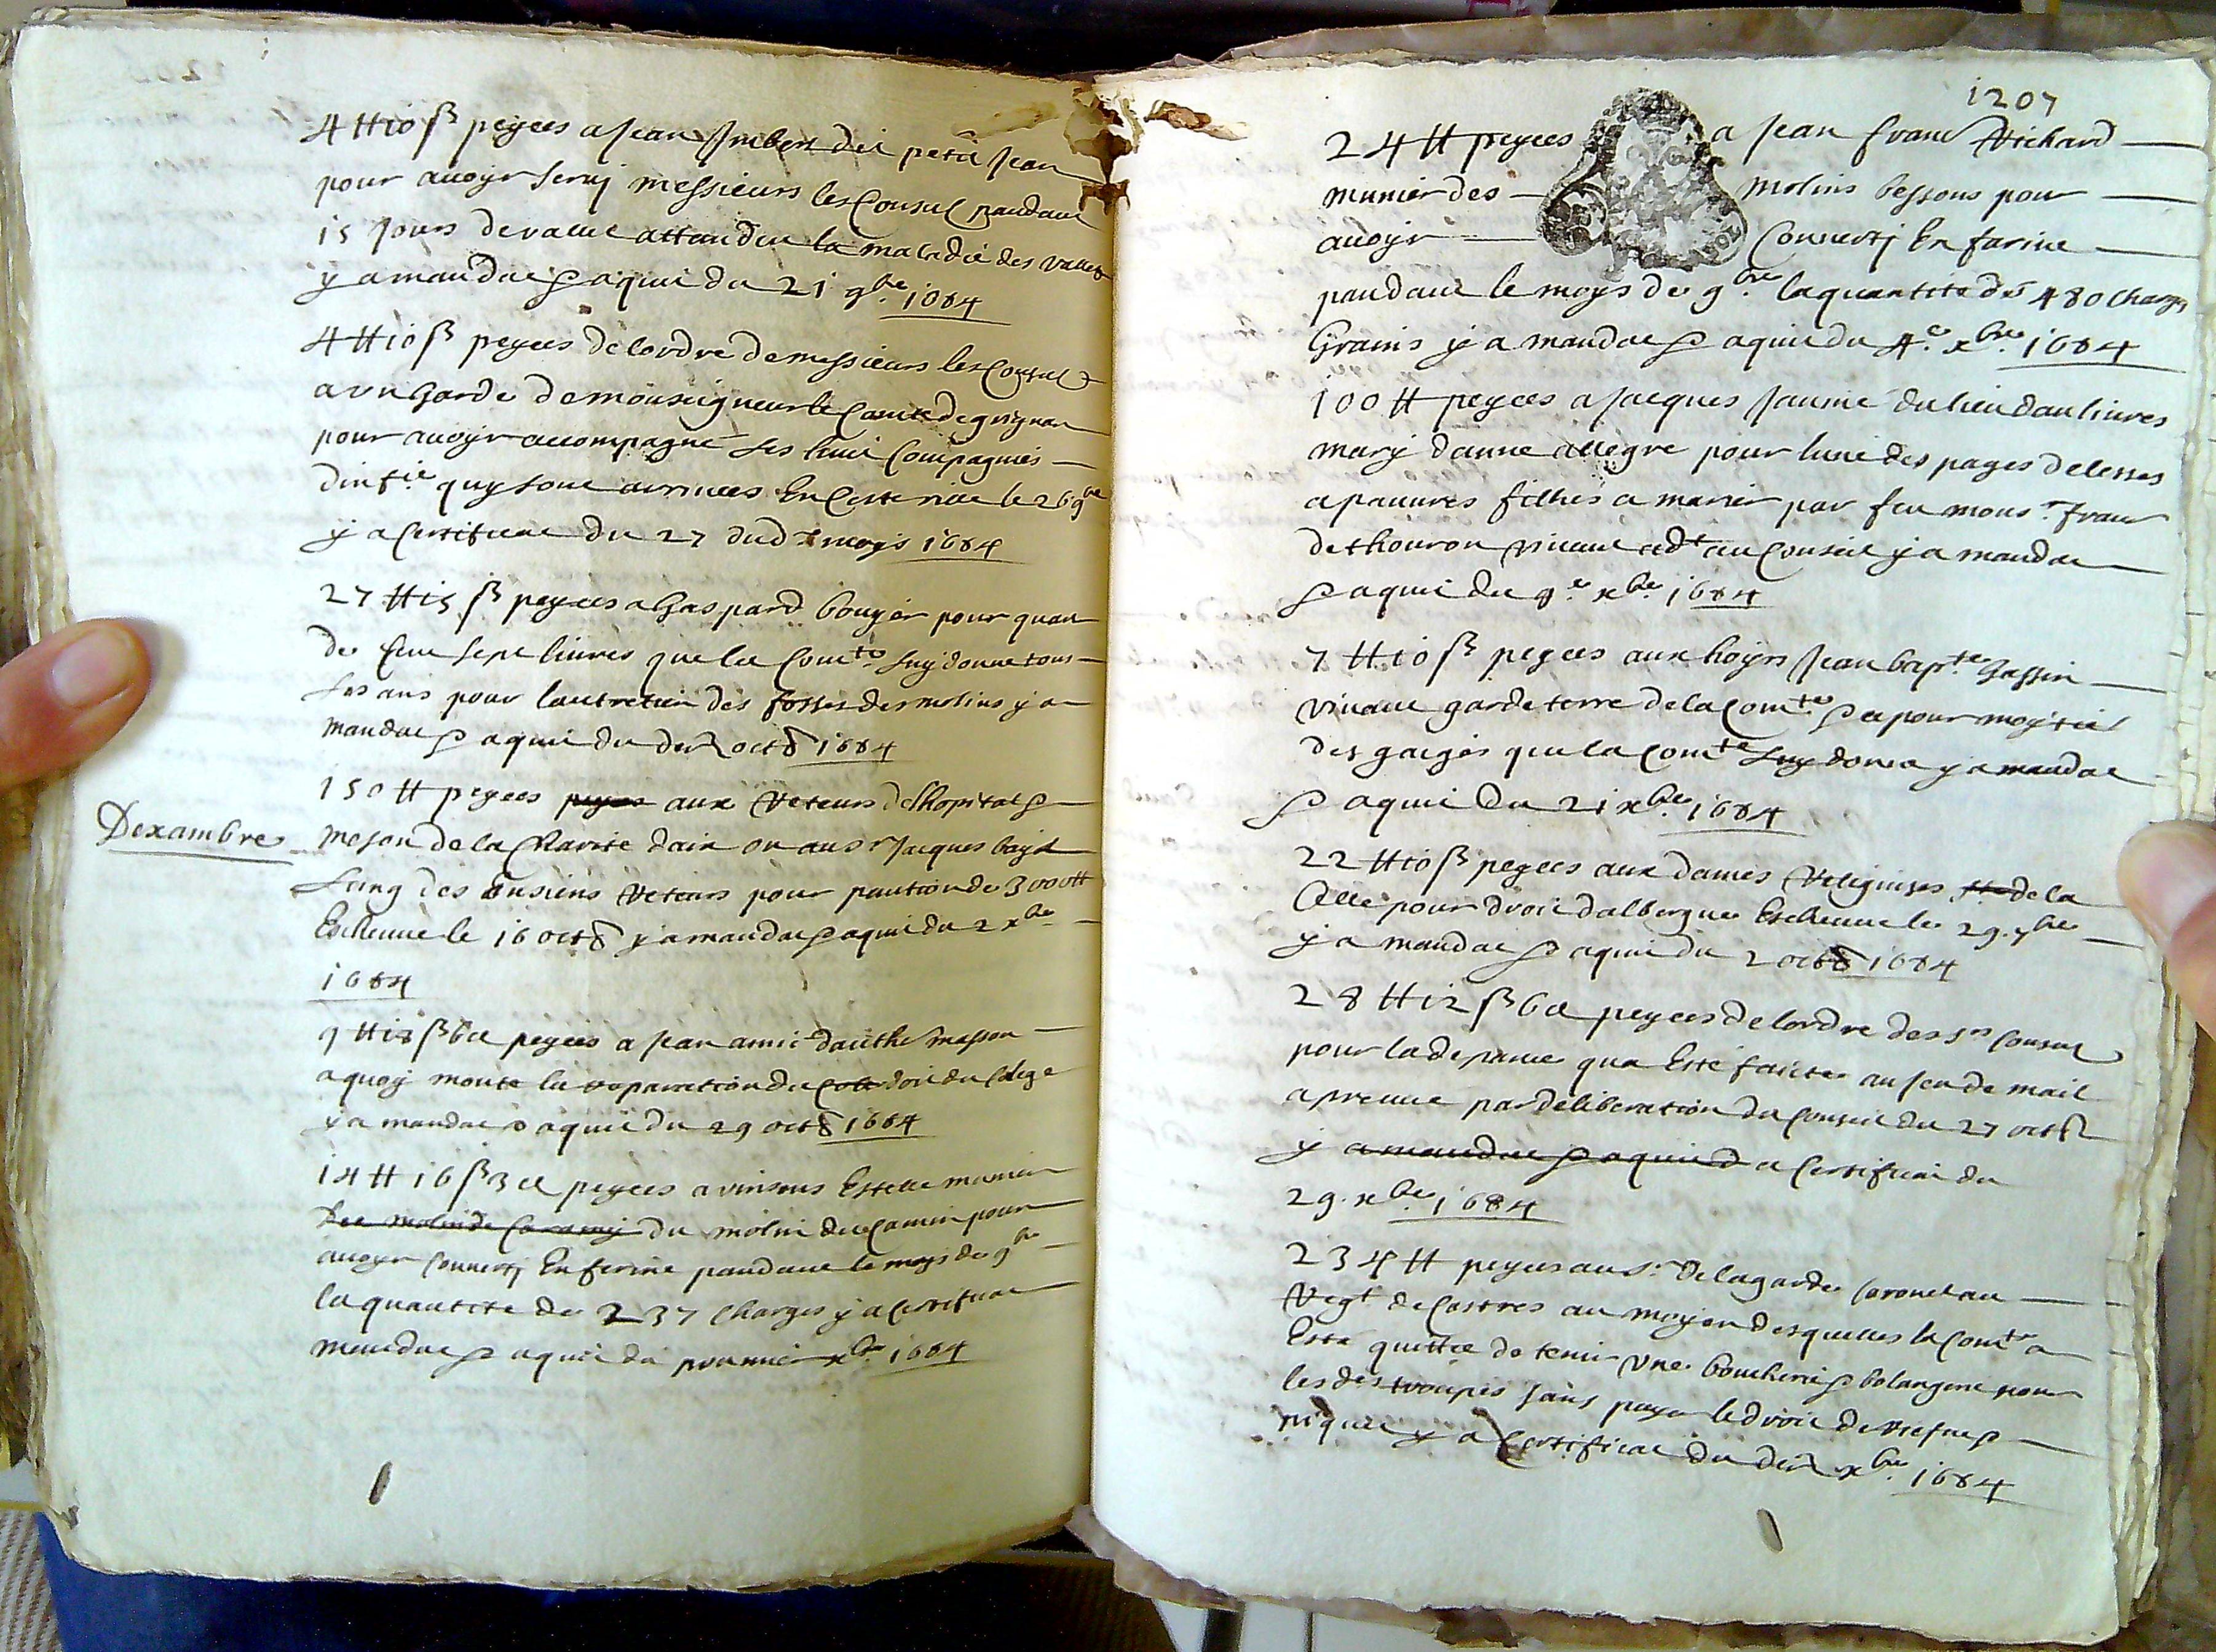 4 tt 10 ß peyees a Jean Jmbert dit petit Jean
pour auoyr seruj messieurs les Consul pandant
15 jours de valet attandeu la maladie des valets
y a mandat & aquit du 21 9bre 1684
4 tt 10 ß peyees de lordre de messieurs les Consuls
a vn garde de monseigneur le Comte de grignan
pour auoyr accompagné les huit Compagnies
dinfie quy sont arriuees En Ceste ville le 26 9bre
y a Certificat du 27 dud moys 1684
27 tt 15 ß peyees a Gaspard bouyer pour quart
de Cent sept liures que la Comte luy donne tous
les ans pour lantretien des fosses des molins y a
mandat & aquit du der octb 1684
Dexambre
150 tt peyees peyees aux Reteurs de lhopital &
meson de la Charite daix ou au sr Jacques bayle
lung des ansiens Reteurs pour pantion de 3000 tt
Escheue le 16 octb y a mandat & aquit du 2 xbre
1684
9 tt 18 ß 6 d peyees a Jean amic dauthe masson
a quoy monte la reparation du Cole doit du Colege
y a mandat & aquit du 29 octb 1684
14 tt 16 ß 3 d peyees a vinsens Estelle munier
des molin de Caramy du molin du Camin pour
auoyr Conuerty En farine pandant le moys de 9bre
la quantite de 237 Charges y a Certificat
mandat & aquit du premier xbre 1684
1207
24 tt peyees a Jean Franc Richard
munier des molins bessons pour
auoyr Conuertj En farine
pandant le moys de 9bre la quantite de 480 Charges
Grains y a mandat & aquit du 4e xbre 1684
100 tt peyees a Jacques Jaume du lieu daulieres
mary danne allegre pour lune des pages delesses
a pauures filhes a marier par feu monsr Franc
de thouron viuant adt au Conseil y a mandat
& aquit du 9e xbre 1684
7 tt 10 ß peyees aux hoyrs Jean bapte Gassin
viuant garde terre de la Comte & ce pour moytie
des gaiges que la Comte luy donne y a mandat
& aquit du 21 xbre 1684
22 tt 10 ß peyees aux dames Religieuses de la
Celle pour droit dalbergue Escheue le 29 7bre
y a mandat & aquit du 2 octb 1684
28 tt 12 ß 6 d peyees de lordre des srs Consuls
pour la depance qua Esté faicte au jeu de mail
apreuue par deliberation du Conseil du 27 octb
y a mandat & aquit d a Certificat du
29 xbre 1684
234 tt peyees au sr de lagarde Coronel au
Regt de Castres au moyen desquelles la Comte a
Esté quittee de tenir vne boucherie & bolangerie pour
les des troupes sans payer le droit de Resue &
piquet y a Certificat du der xbre 1684